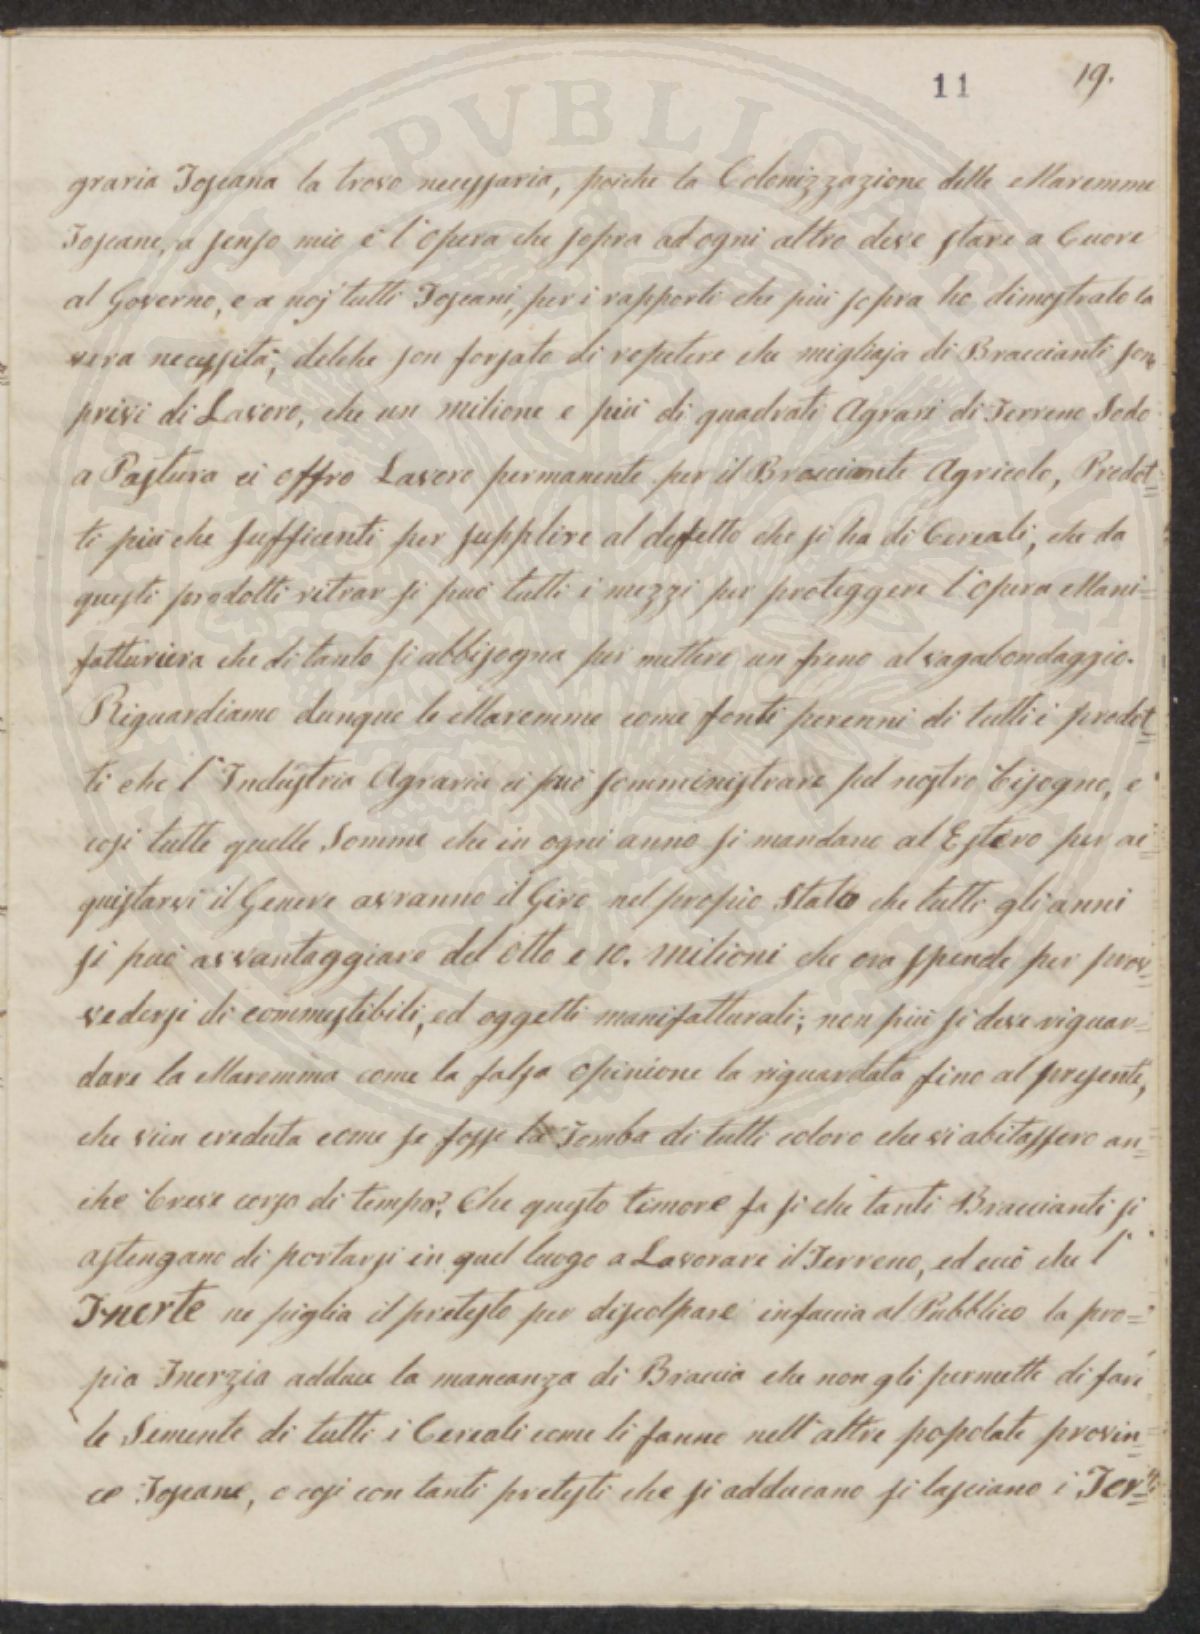 11 19.
graria Toscana la trovo necessaria, poiche la Colonizzazione delle Maremme
Toscane, a senso mio è l'Opera che sopra ad ogni altro deve stare a Cuore
al Governo, e a noj tutti Toscani, per i rapporti che più sopra ho dimostrato la
vera necessità; delche son forsato di repetere che migliaja di Braccianti sono
privi di Lavoro, che un milione e più di quadrati Agrari di Terreno Sodo
a Pastura ci offro Lavoro permanente per il Bracciante Agricolo, Prodot=
ti più che sufficenti per supplire al difetto che si ha di Cereali, che da
questi prodotti ritrar si può tutti i mezzi per proteggere l'Opera Mani=
fatturiera che di tanto si abbisogna per mettere un freno al vagabondaggio.
Riguardiamo dunque le Maremme come fonti perenni di tutti i prodot=
ti che l'Industria Agraria ci può somministrare pel nostro bisogno, e
cosi tutte quelle Somme che in ogni anno si mandano al Estero per ac=
quistarvi il Genere avranno il Giro nel propio Stato che tutti gli anni
si può avvantaggiare del otto e 10. milioni che ora spende per prov=
vedersi di commestibili, ed oggetti manifatturati; non più si deve riguar=
dare la Maremma come la falsa opinione la riguardata fino al presente,
che vien creduta come se fosse la Tomba di tutti coloro che vi abitassero an=
che breve corso di tempo? Che questo timore fa si che tanti Braccianti si
astengano di portarsi in quel luogo a Lavorare il Terreno, ed ecco che l'
Inerte ne piglia il pretesto per discolpare infaccia al Pubblico la pro=
pia Inerzia adduce la mancanza di Braccia che non gli permette di fare
le Semente di tutti i Cereali come li fanno nell'altre popolate provin=
ce Toscane, e cosi con tanti pretesti che si adducano si lasciano i Ter=